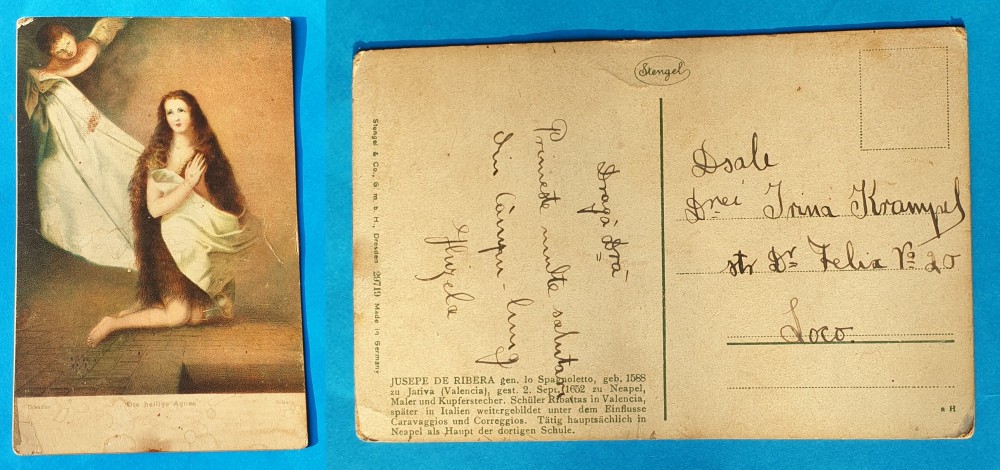 Dresden
Die heilige Agnes
Stengel
Stengel & Co., G. m. b. H., Dresden 29719 Made in Germany
Dragă Dră
Primeste multe salutari
din Câmpu-lung
JUSEPE DE RIBERA gen. lo Spagnoletto, geb. 1588
zu Jativa (Valencia), gest. 2. Sept. 1652 zu Neapel,
Maler und Kupferstecher. Schüler Ribaltas in Valencia,
später in Italien weitergebildet unter dem Einflusse
Caravaggios und Correggios. Tätig hauptsächlich in
Neapel als Haupt der dortigen Schule.
Dsale
Drei Irina Krampel
str Dr Felix No 20
Loco.
H